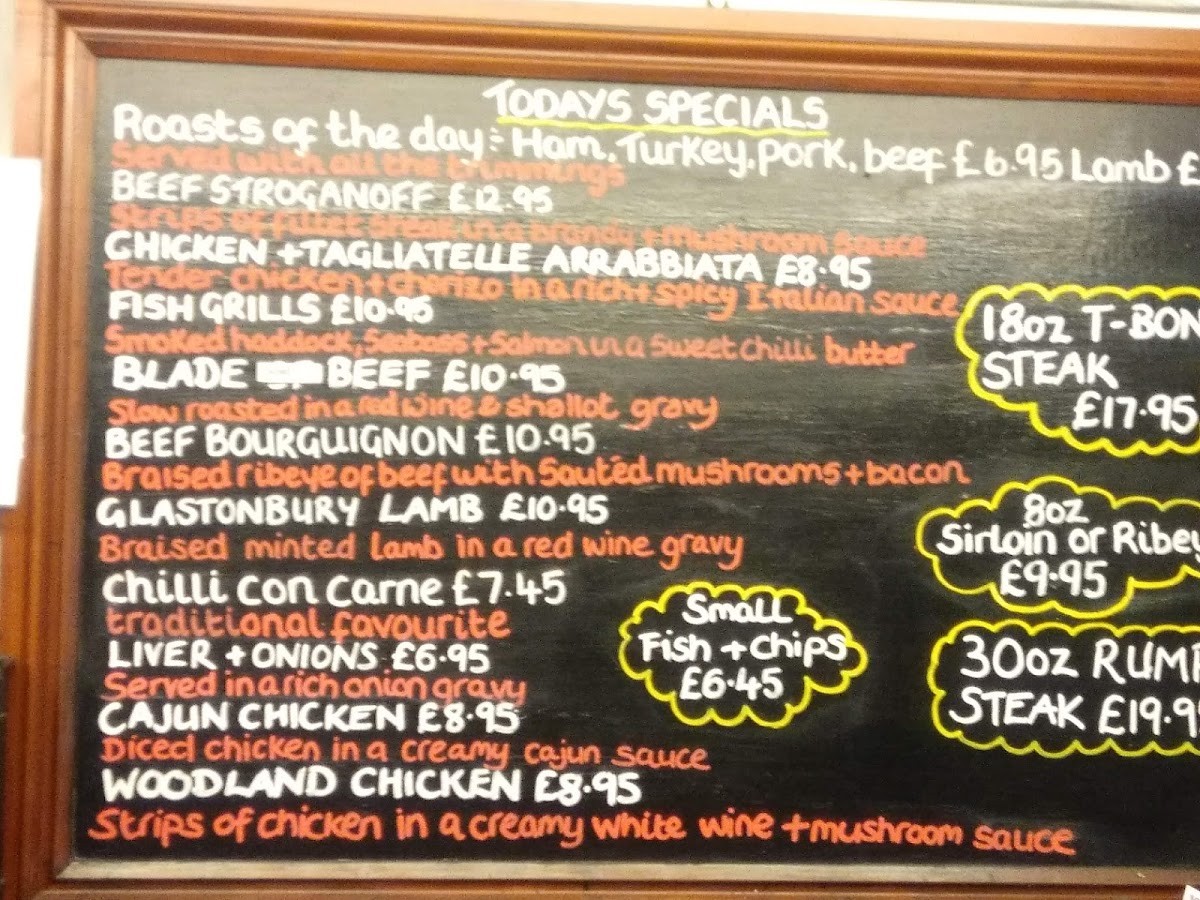 TODAYS SPECIALS
Roasts of the day: Ham, Turkey, pork, beef £6.95 Lamb £
Served with all the trimmings
BEEF STROGANOFF £12.95
Strips of fillet steak in a brandy + mushroom sauce
CHICKEN + TAGLIATELLE ARRABBIATA £8.95
Tender chicken + chorizo in a rich + spicy Italian sauce
FISH GRILLS £10.95
Smoked haddock, Seabass + Salmon in a sweet chilli butter
BLADE BEEF £10.95
Slow roasted in a red wine & shallot gravy
BEEF BOURGUIGNON £10.95
Braised ribeye of beef with Sautéd mushrooms + bacon
GLASTONBURY LAMB £10.95
Braised minted lamb in a red wine gravy
Chilli con carne £7.45
traditional favourite
LIVER + ONIONS £6.95
Served in a rich onion gravy
CAJUN CHICKEN £8.95
Diced chicken in a creamy cajun sauce
WOODLAND CHICKEN £8.95
Strips of chicken in a creamy white wine + mushroom sauce
Small
Fish + chips
£6.45
18oz T-BON
STEAK
£17.95
8oz
Sirloin or Ribey
£9.95
30oz RUMP
STEAK £19.9